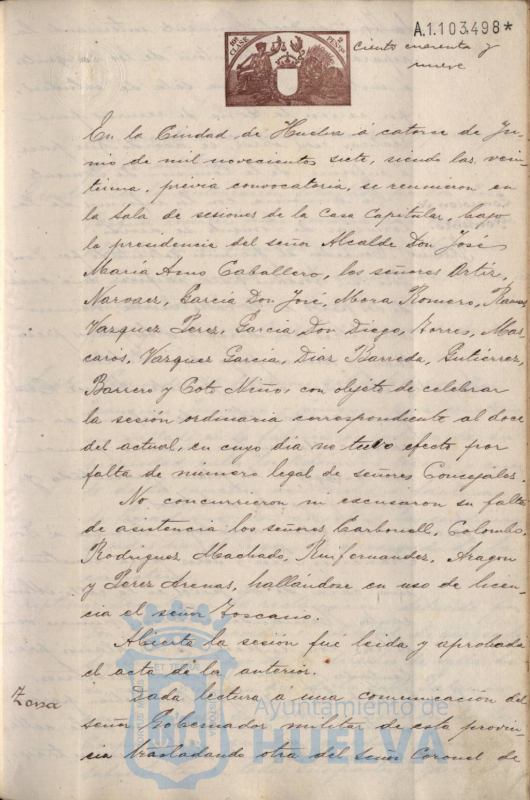 10ª CLASE
2 PESETAS
A.1.103.498*
Ciento cuarenta y
nueve
En la Ciudad de Huelva á catorce de Ju-
nio de mil novecientos siete, siendo las vein-
tiuna, previa convocatoria, se reunieron en
la Sala de sesiones de la Casa Capitular, bajo
la presidencia del señor Alcalde Don José
María Amo Caballero, los señores Ortiz,
Narvaez, García Don José, Mora Romero, Ramos,
Vazquez Perez, García Don Diego, Torres, Mas
carós, Vázquez García, Diaz Barreda, Gutiérrez,
Barrero y Coto Niño, con objeto de celebrar
la sesión ordinaria correspondiente al doce
del actual, en cuyo día no tuvo efecto por
falta de número legal de señores Concejales.
No concurrieron ni escusaron su falta
de asistencia los señores Carbonell, Colombo,
Rodríguez Machado, Ruifernandez, Aragon
y Perez Arenas, hallándose en uso de licen-
cia el señor Toscano.
Abierta la sesión fué leida y aprobada
el acta de la anterior.
Zona
Dada lectura a una comunicación del
señor Gobernador militar de esta provin
cia trasladando otra del señor Coronel de
Ayuntamiento de
HUELVA